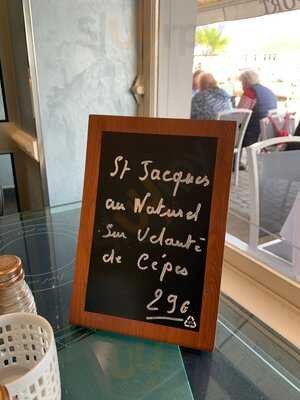 St Jacques
au Naturel
Sur Velouté
de Cêpes
29€